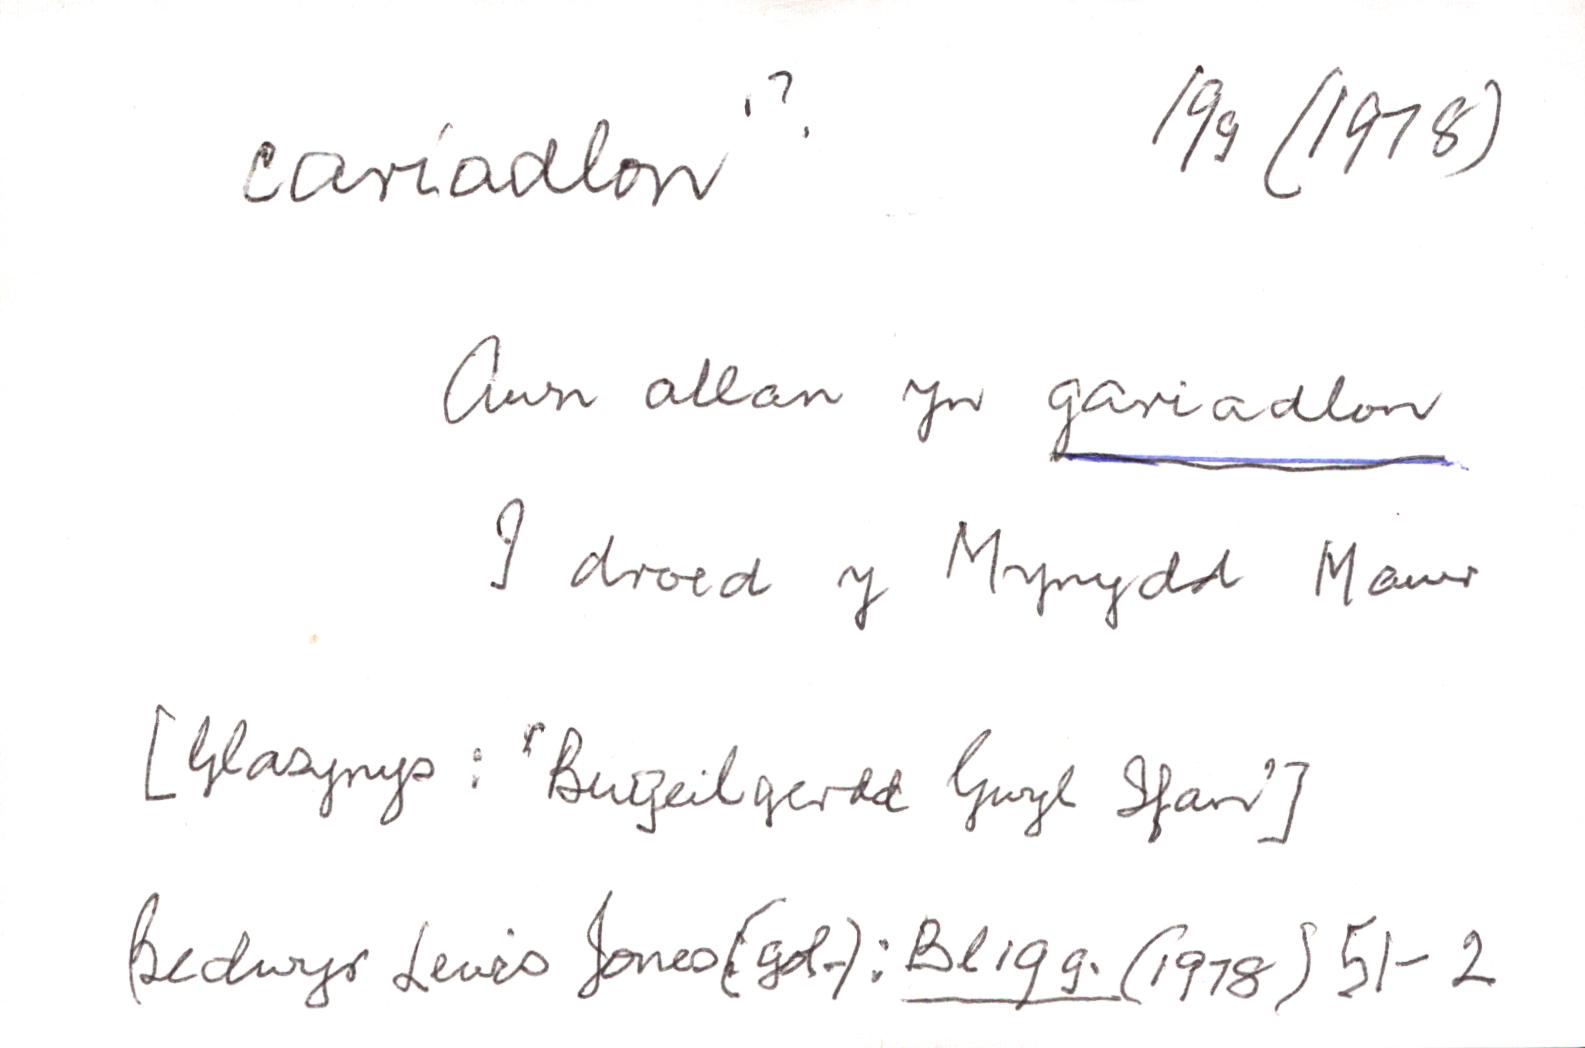 cariadlon ‘?’ 19g (1978)
Awn allan yn gariadlon
I droed y Mynydd Mawr
[Glasynys : ‘Bugeilgerdd Gwyl Ifan’]
Bedwyr Lewis Jones (gol.) : Bl19g. (1978) 51-2